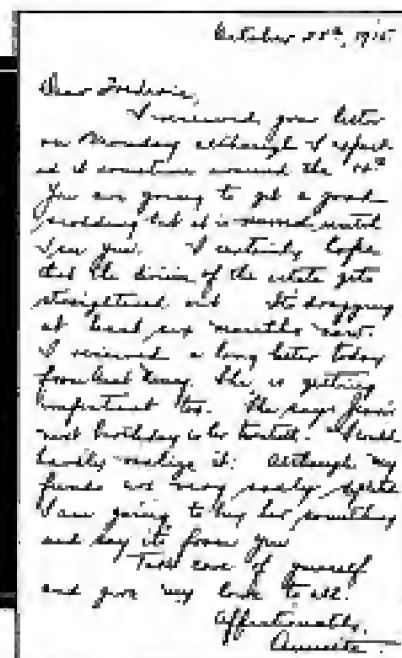 October 28th, 1915
Dear Frederic,
I received your letter
on Monday although I expect
ed it sometime around the
You are going to get a good
scolding but it is until
I see you. I certainly hope
that the division of the estate gets
straightened out Its dragging
at least six months now.
I received a long letter today
from She is getting
impatient too. She says
next birthday is her twelfth. I will
hardly realize it. Although my
funds are very sadly
I am going to buy her something
and say its from you
Take care of yourself
and give my love to all.
Affectionately,
Annette.